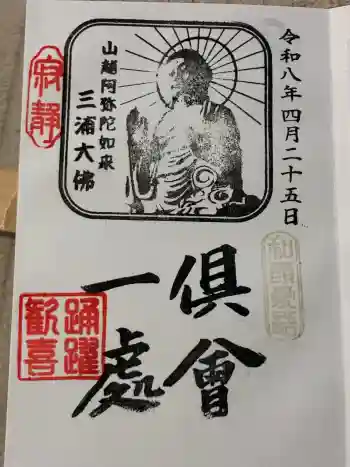 令和八年四月二十五日
山越阿弥陀如来
三浦大佛
寂静
倶會
一處
踊躍
歓喜